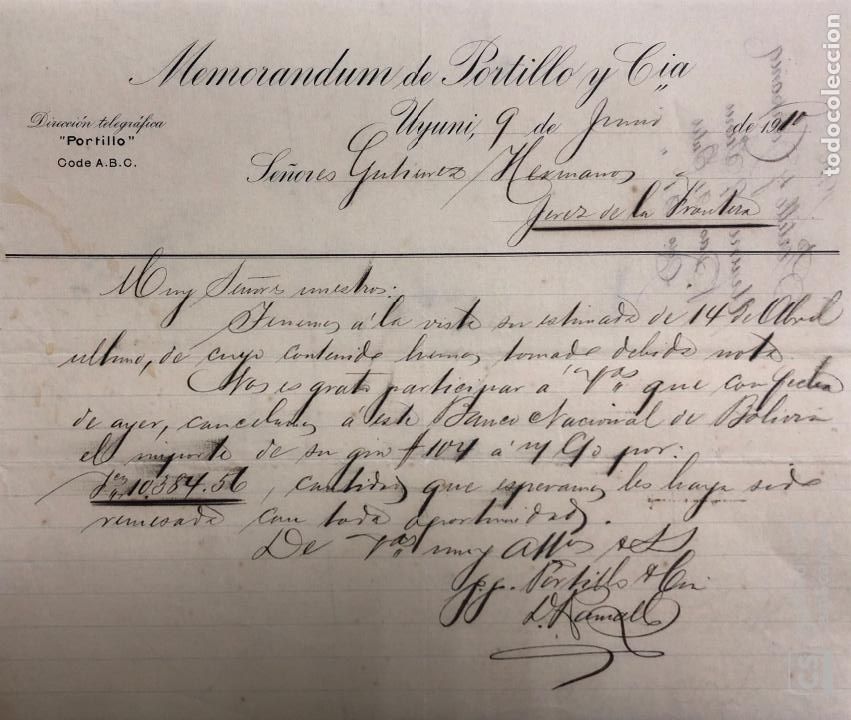 Memorandum de Portillo y Cia
Dirección telegráfica
"Portillo"
Code A.B.C.
Uyuni, 9 de Junio de 1910
Señores Gutierrez Hermanos
Jerez de la Frontera
Muy Señores nuestros:
Tenemos á la vista su estimada de 14 de Abril
ultimo, de cuyo contenido hemos tomado debida nota.
Nos es grato participar á Vds que con fecha
de ayer, cancelamos á este Banco Nacional de Bolivia
el importe de su giro # 104 á n/ c/o por:
10.384.56, cantidad que esperamos les haya sido
remesada con toda oportunidad.
De Vds muy Attos & SS
p.p. Portillo & Cia
todocoleccion